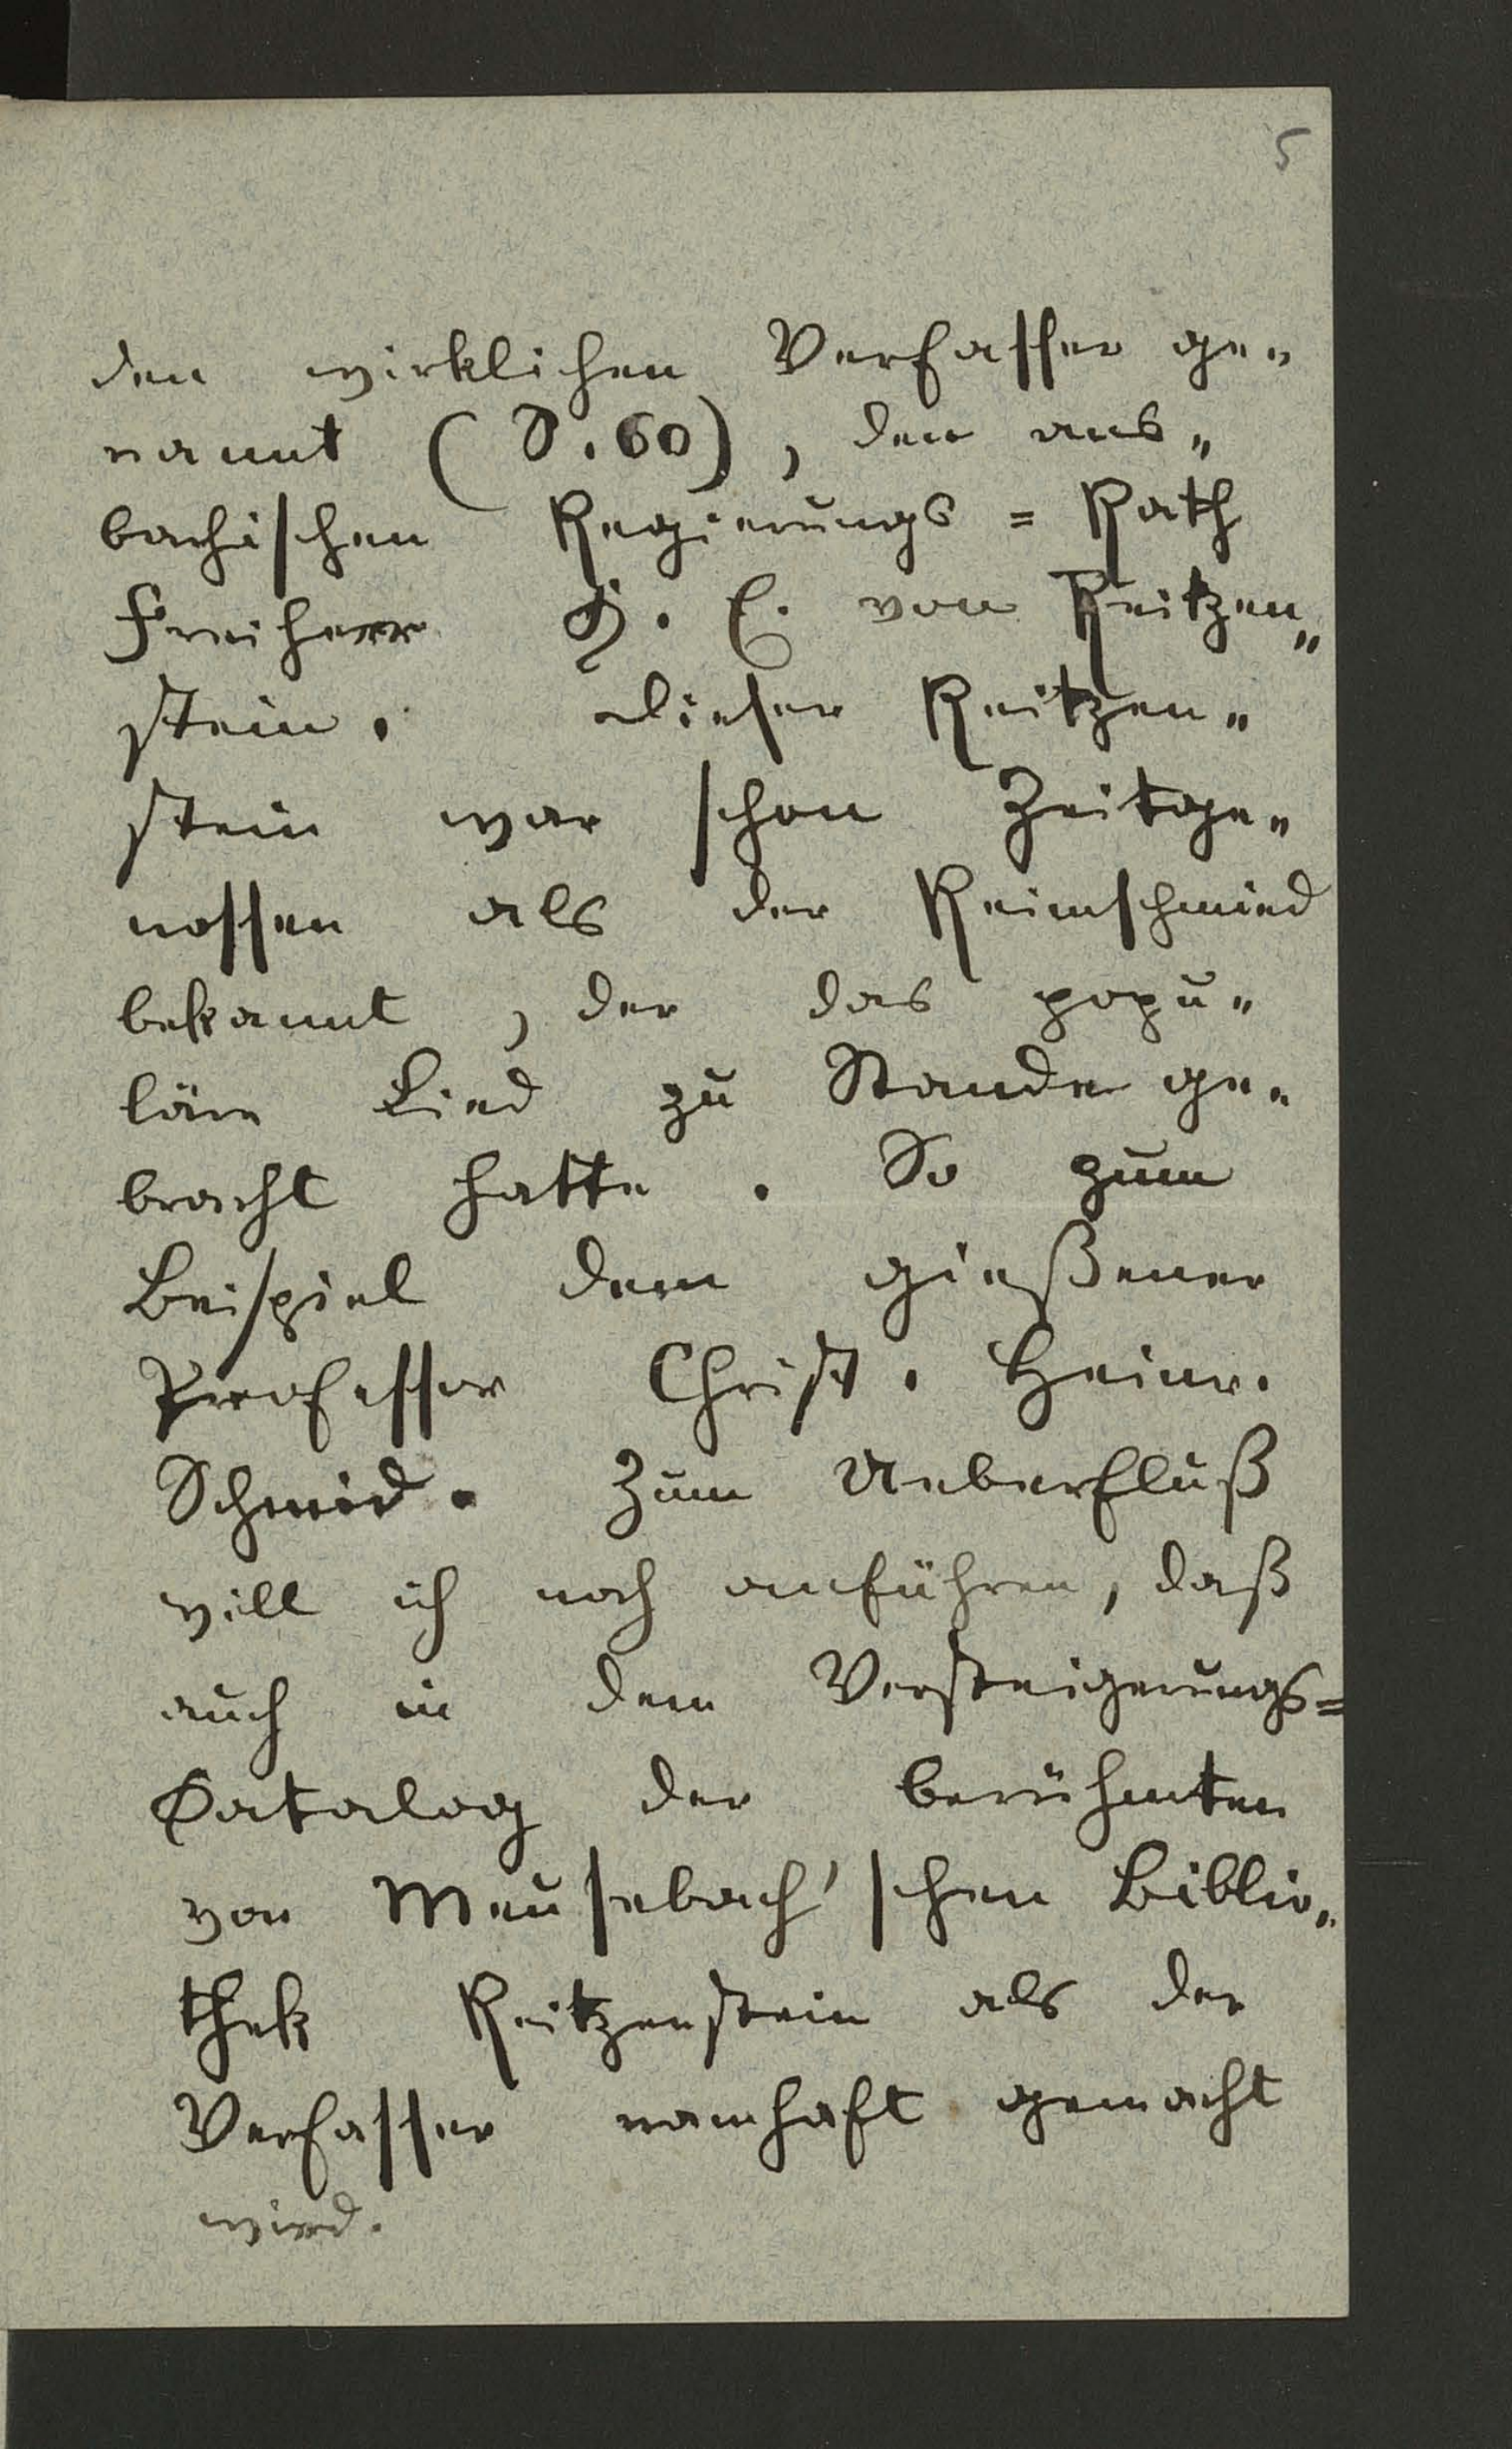 5
den wirklichen Verfasser ge„
nannt (S. 60), den ans„
bachischen Regierungs=Rath
Freiherr H. E. von Reitzen„
stein. Dieser Reitzen„
stein war schon Zeitge„
nossen als der Reimschmied
bekannt, der das popu„
läre Lied zu Stande ge„
bracht hatte. So zum
Beispiel dem gießener
Professor Christ. Heinr.
Schmid. Zum Ueberfluß
will ich noch anführen, daß
auch in dem Versteigerungs=
Catalog der berühmten
von Meusebach'schen Biblio„
thek Reitzenstein als der
Verfasser namhaft gemacht
wird.